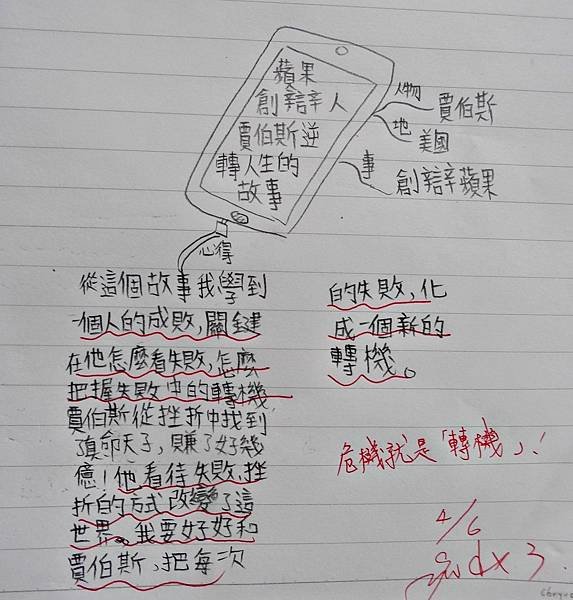 蘋果
創辦人
賈伯斯逆
轉人生的
故事
人物
賈伯斯
地
美國
事
創辦蘋果
心得
從這個故事我學到
一個人的成敗,關鍵
在他怎麼看失敗,怎麼
把握失敗中的轉機
賈伯斯從挫折中找到
真命天子,賺了好幾
億!他看待失敗,挫
折的方式改變了這
世界。我要好好和
賈伯斯,把每次
的失敗,化
成一個新的
轉機。
危機就是「轉機」!
4/6
dx3